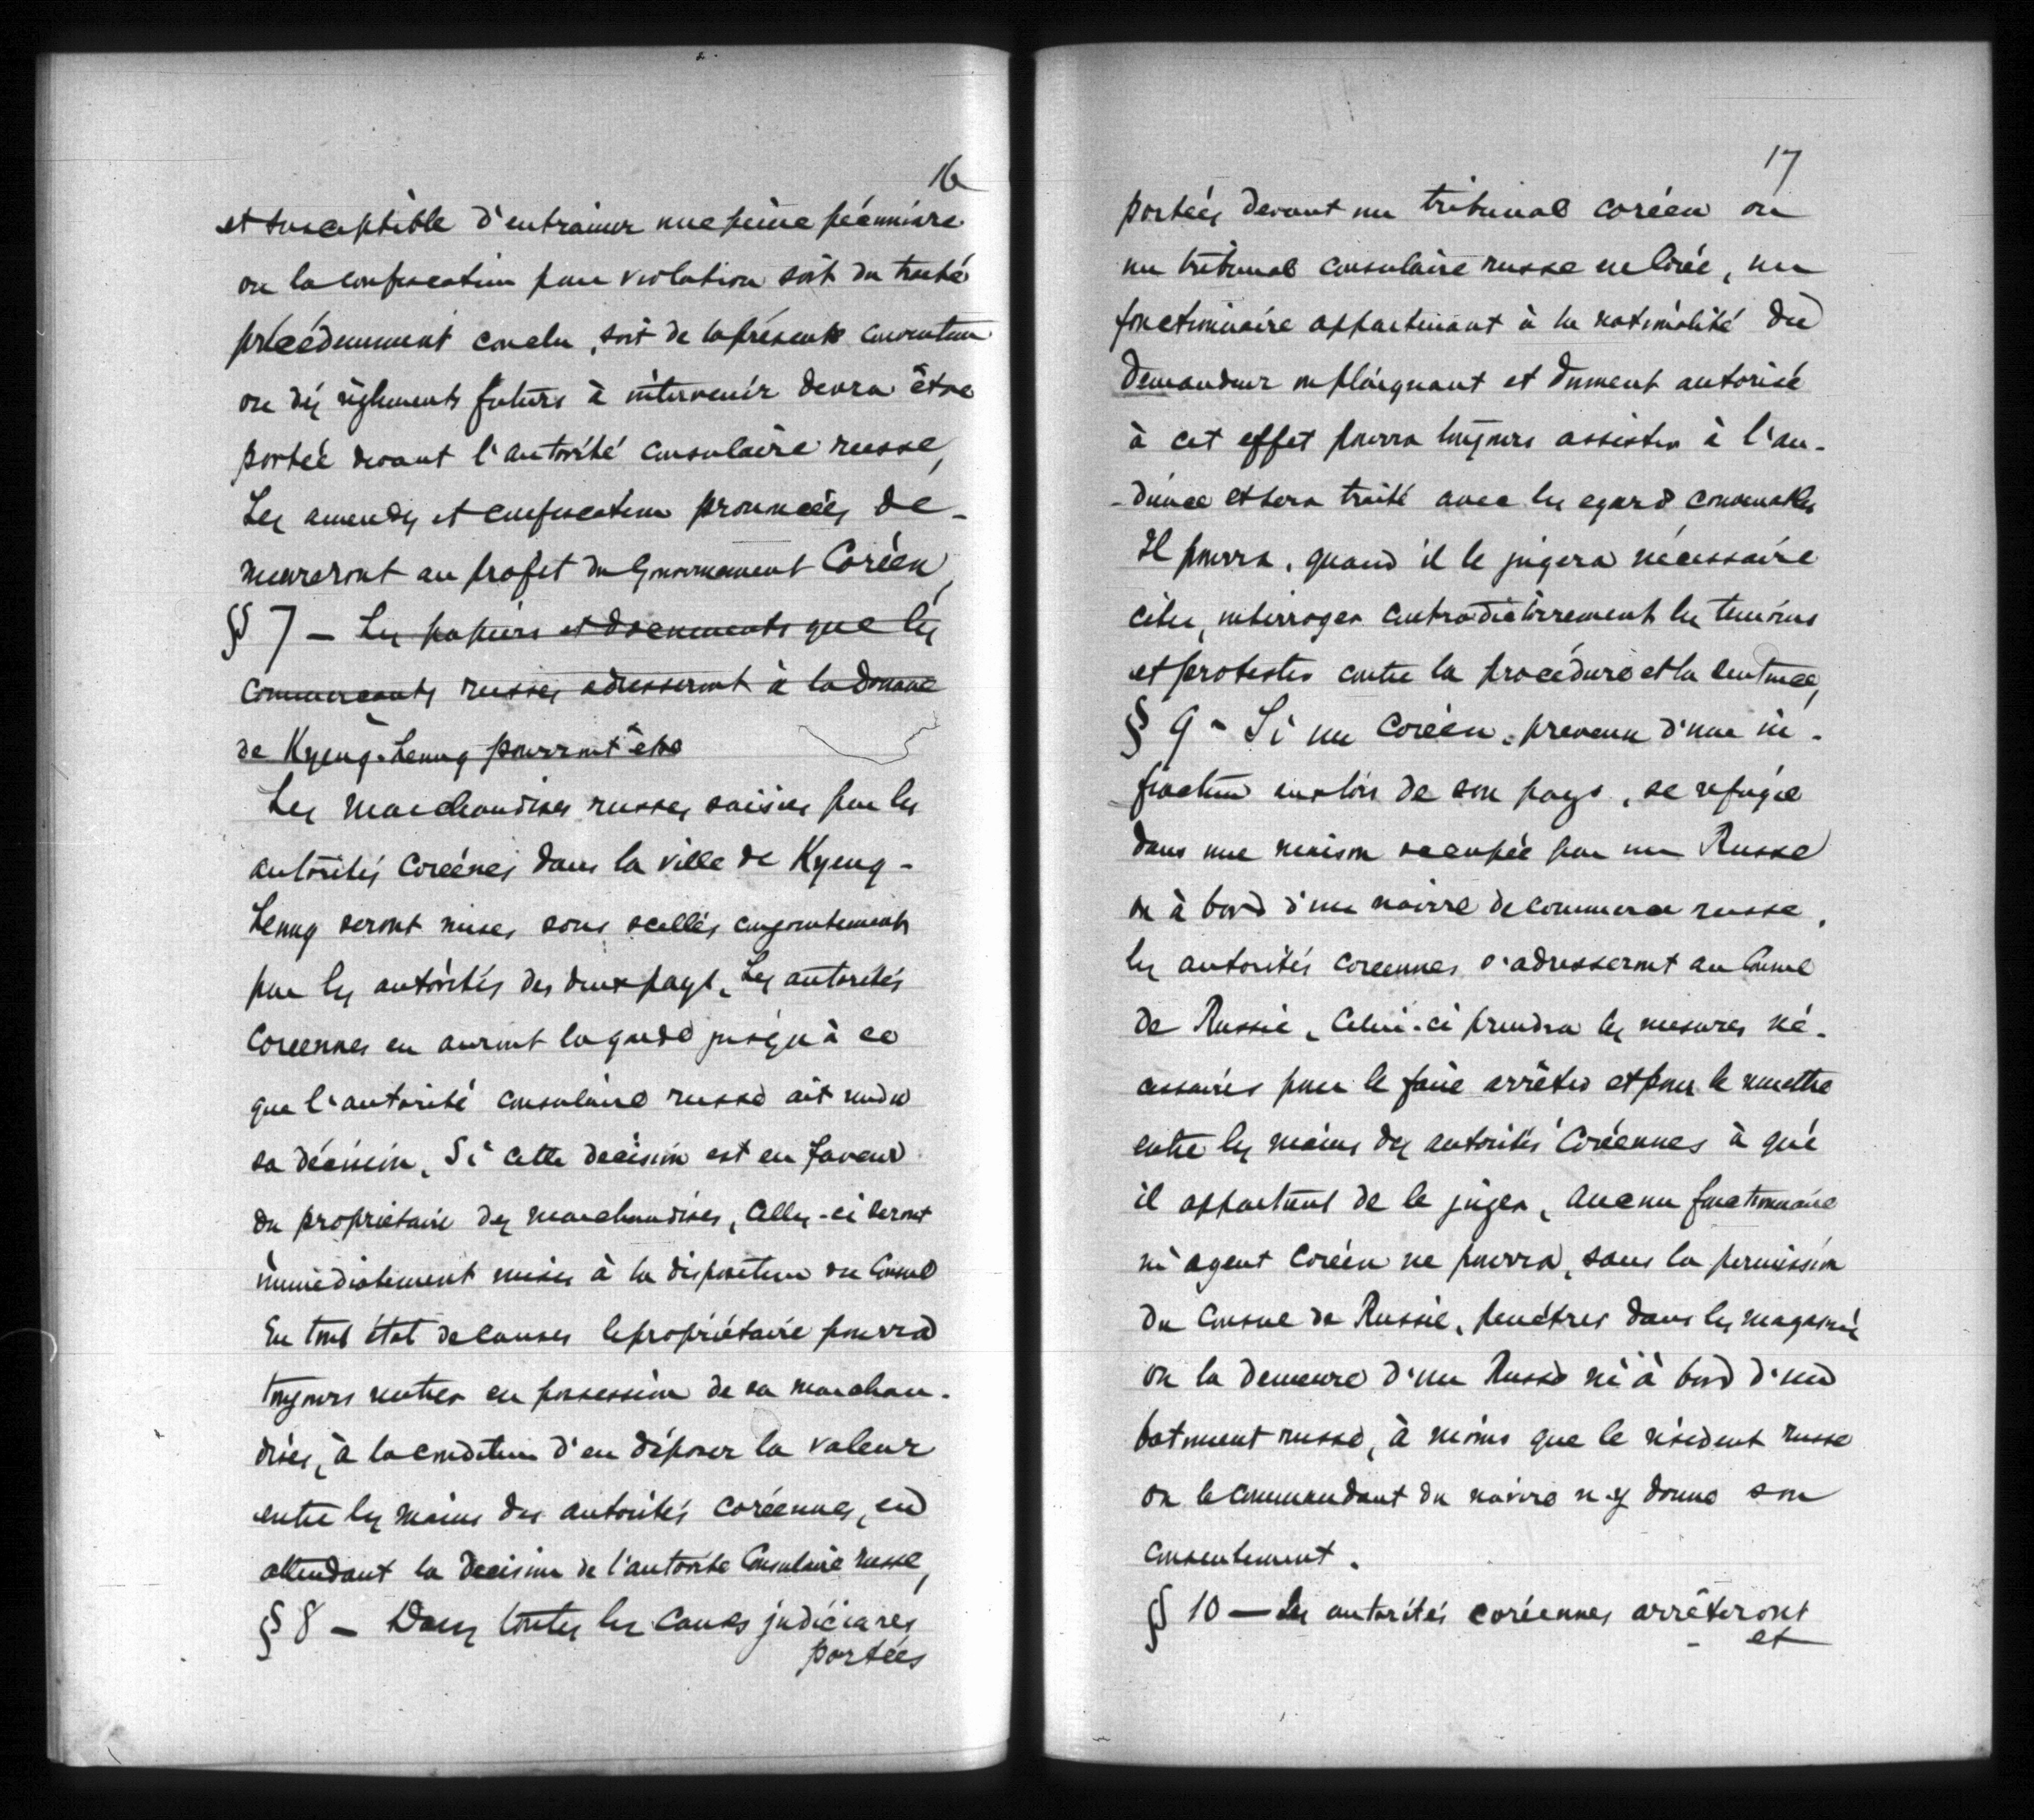 16
et susceptible d'entrainer une peine pécuniaire
ou la confiscation pour violation soit du traité
précédemment conclu, soit de la présente convention
ou des règlements futurs à intervenir devra être
portée devant l'autorité consulaire russe,
Les amendes et confiscation prononcées de-
meureront au profit du Gouvernement Coréen,
§ 7 — Les papiers et documents que les
commerçants russes adresseront à la douane
de Kyeng-Heung pourront être
Les marchandises russes saisies par les
autorités coréenes dans la ville de Kyeng-
Heung seront mises sous scellés conjointement
par les autorités des deux pays. Les autorités
Coreennes en auront la garde jusqu'à ce
que l'autorité consulaire russe ait rendu
sa décision. Si cette decision est en faveur
du propriétaire des marchandises, Celles-ci seront
immédiatement mises à la disposition du Consul
En tout état de causes le propriétaire pourra
toujours rentrer en possession de sa marchan-
dises, à la condition d'en déposer la valeur
entre les mains des autorités coréennes, en
attendant la decision de l'autorité Consulaire russe,
§ 8 — Dans toutes les causes judiciares
portées
17
portées devant un tribunal coréen ou
un tribunal consulaire russe en Corée, un
fonctionnaire appartenant à la nationalité du
demandeur ou plaignant et dument autorisé
à cet effet pourra toujours assister à l'au-
-dience et sera traité avec les egard convenables
Il pourra, quand il le jugera nécessaire
citer, interroger contradictoirement les temoins
et protester contre la procédure et la sentence,
§ 9 - Si un Coréen, prevenu d'une in-
fraction aux lois de son pays, se refugie
dans une maison occupée par un Russe
ou à bord d'un navire de commerce russe,
les autorités coreennes s'adresseront au Consul
de Russie, Celui-ci prendra les mesures né-
cessaires pour le faire arrêter et pour le remettre
entre les mains des autorités Coréennes à qui
il appartient de le juger, Aucun fonctionnaire
ni agent Coréen ne pourra, sans la permission
du Consul de Russie, penétrer dans les magasins
ou la demeure d'un Russe ni à bord d'un
batiment russe, à moins que le résident russe
ou le commandant du navire n'y donne son
consentement.
§ 10 — Les autorités coréennes arrêteront
et